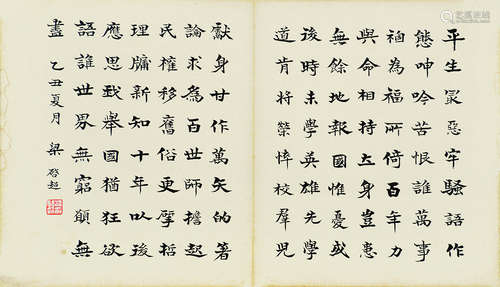 平生冣惡牢騷語作
態呻吟苦恨誰萬事
禍為福所倚百年力
與命相持立身豈患
無餘地報國惟憂或
後時未學英雄先學
道肯將榮悴校羣兒
獻身甘作萬矢的著
論求為百世師擔起
民權移舊俗更揅哲
理牖新知十年以後
應思我舉國猶狂欲
語誰世界無窮願無
盡 乙丑夏月 梁啓超